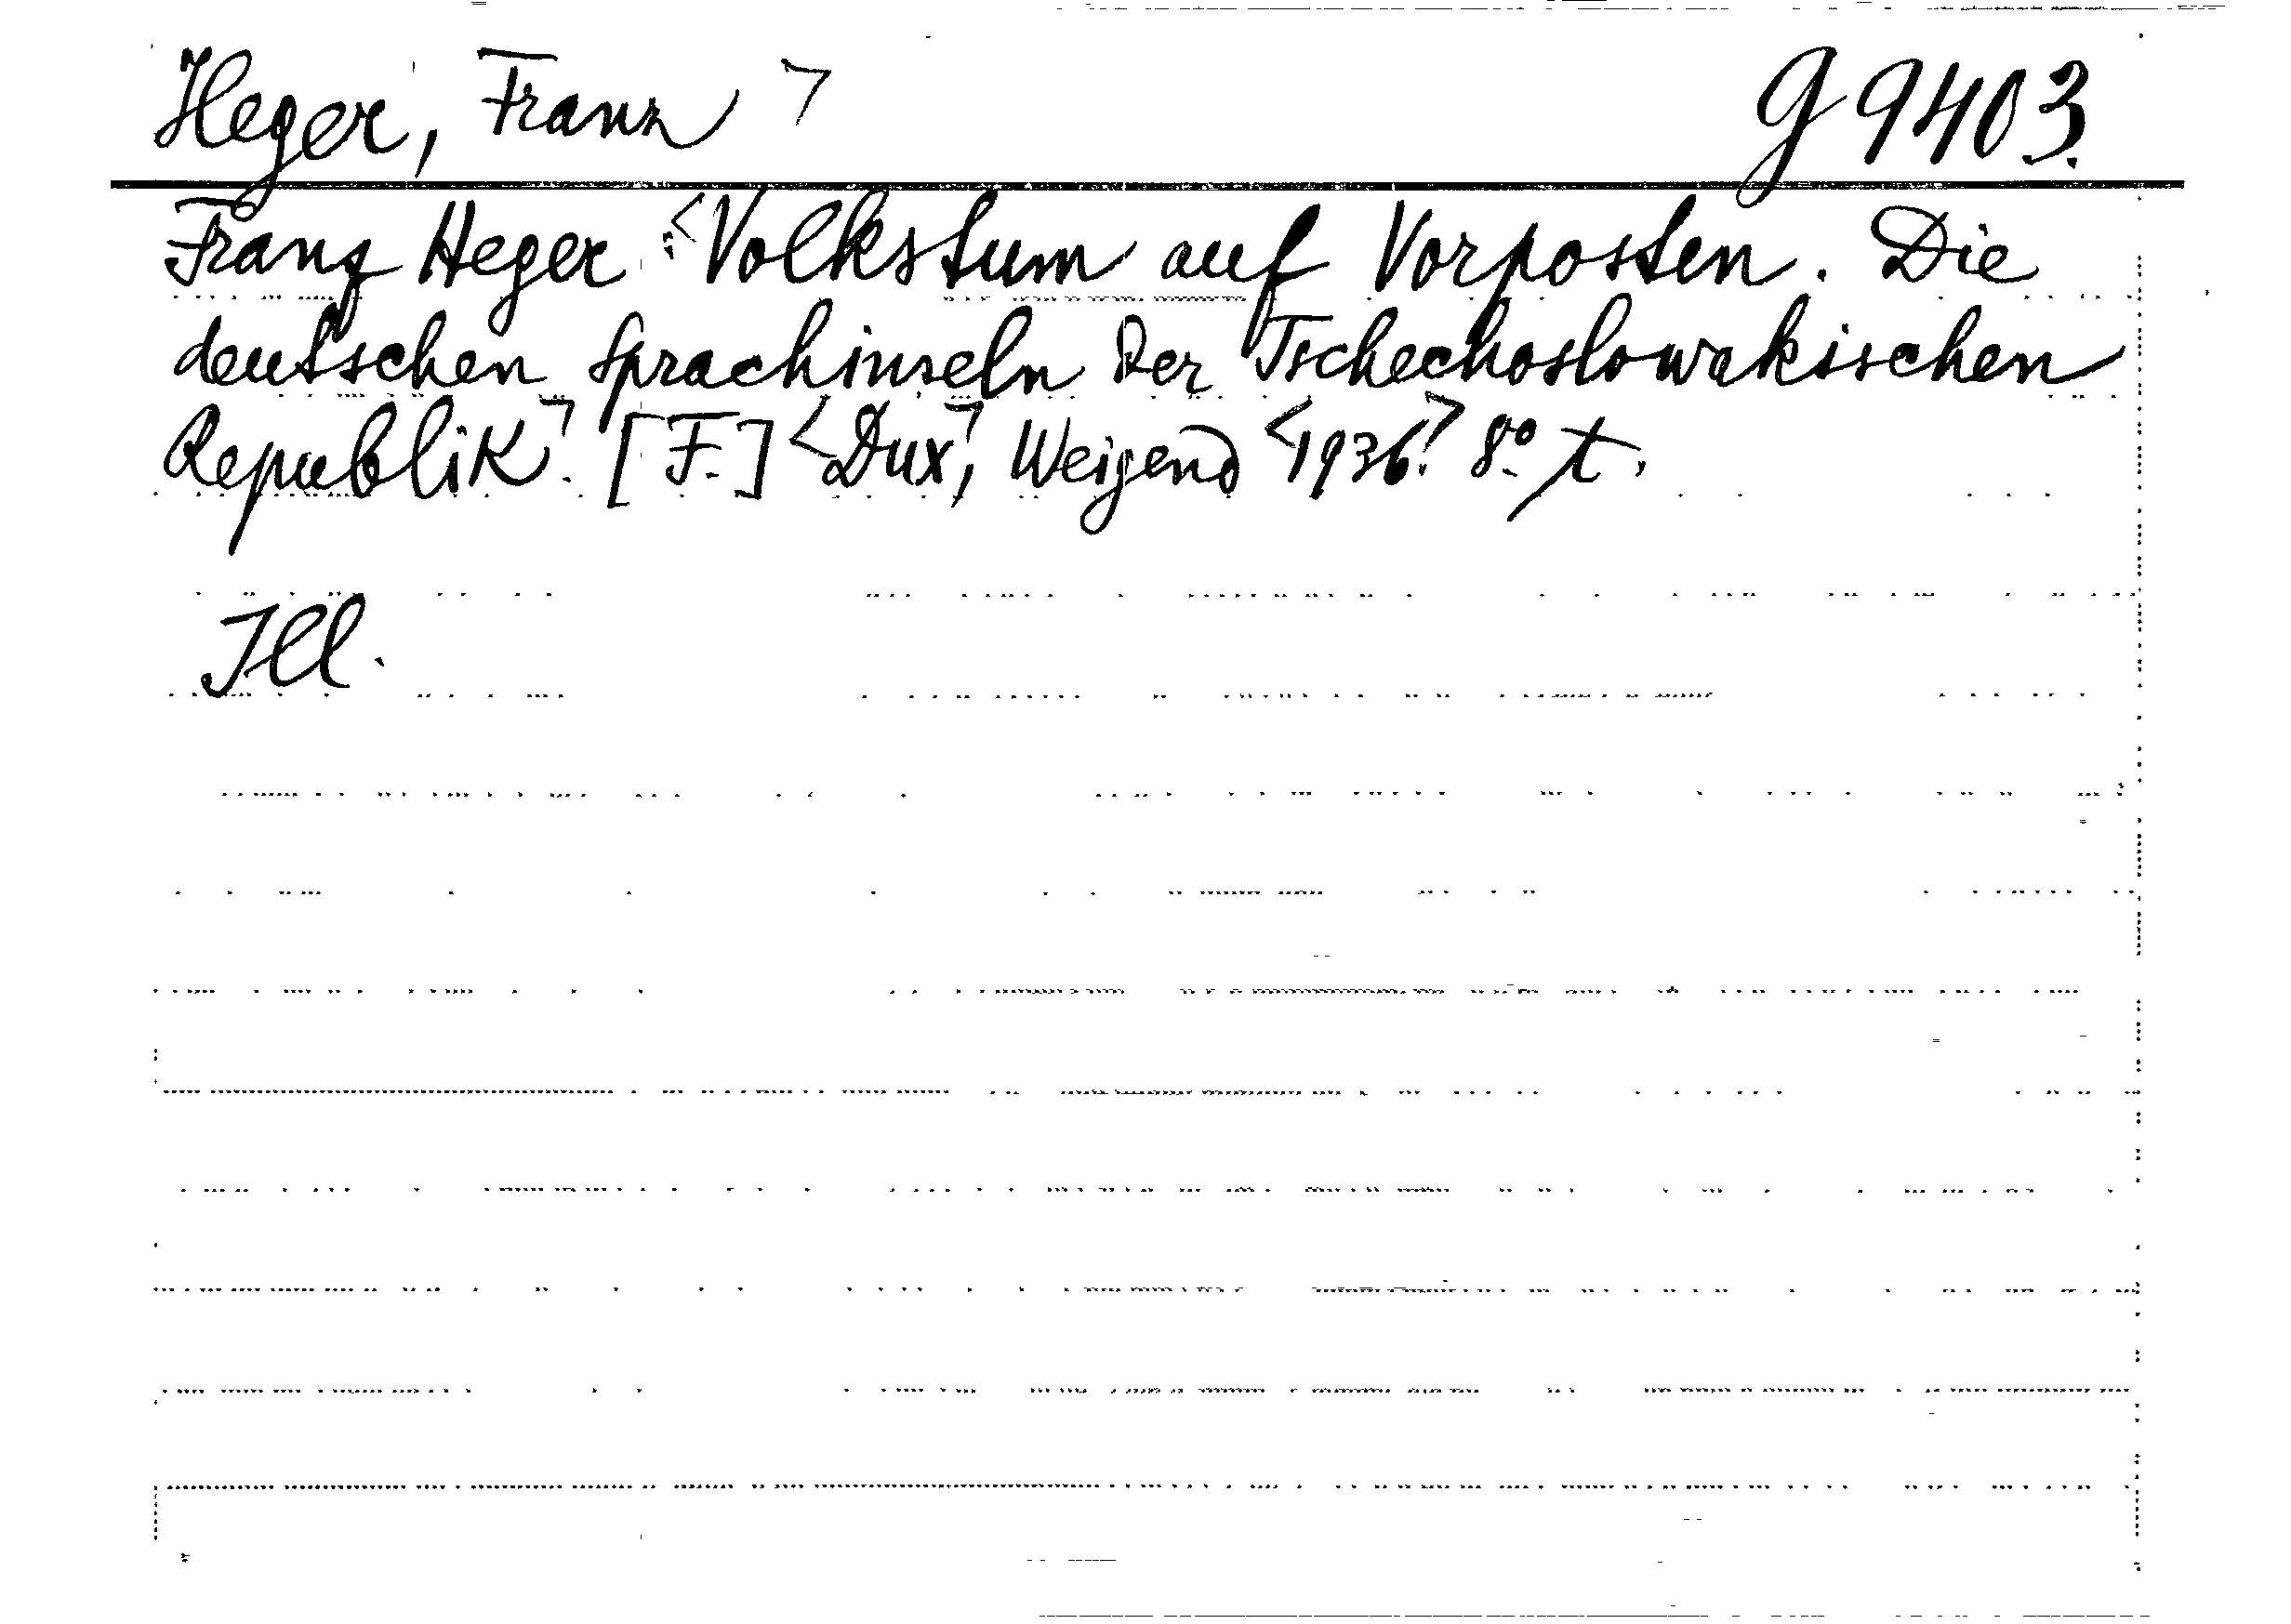 Heger, Franz ¬ g 9403.
Franz Heger: <Volkstum auf Vorposten. Die
deutschen Sprachinseln der Tschechoslowakischen
Republik¬. [F.] <Dux¬, Weigend <1936¬. 8° t.
Ill.